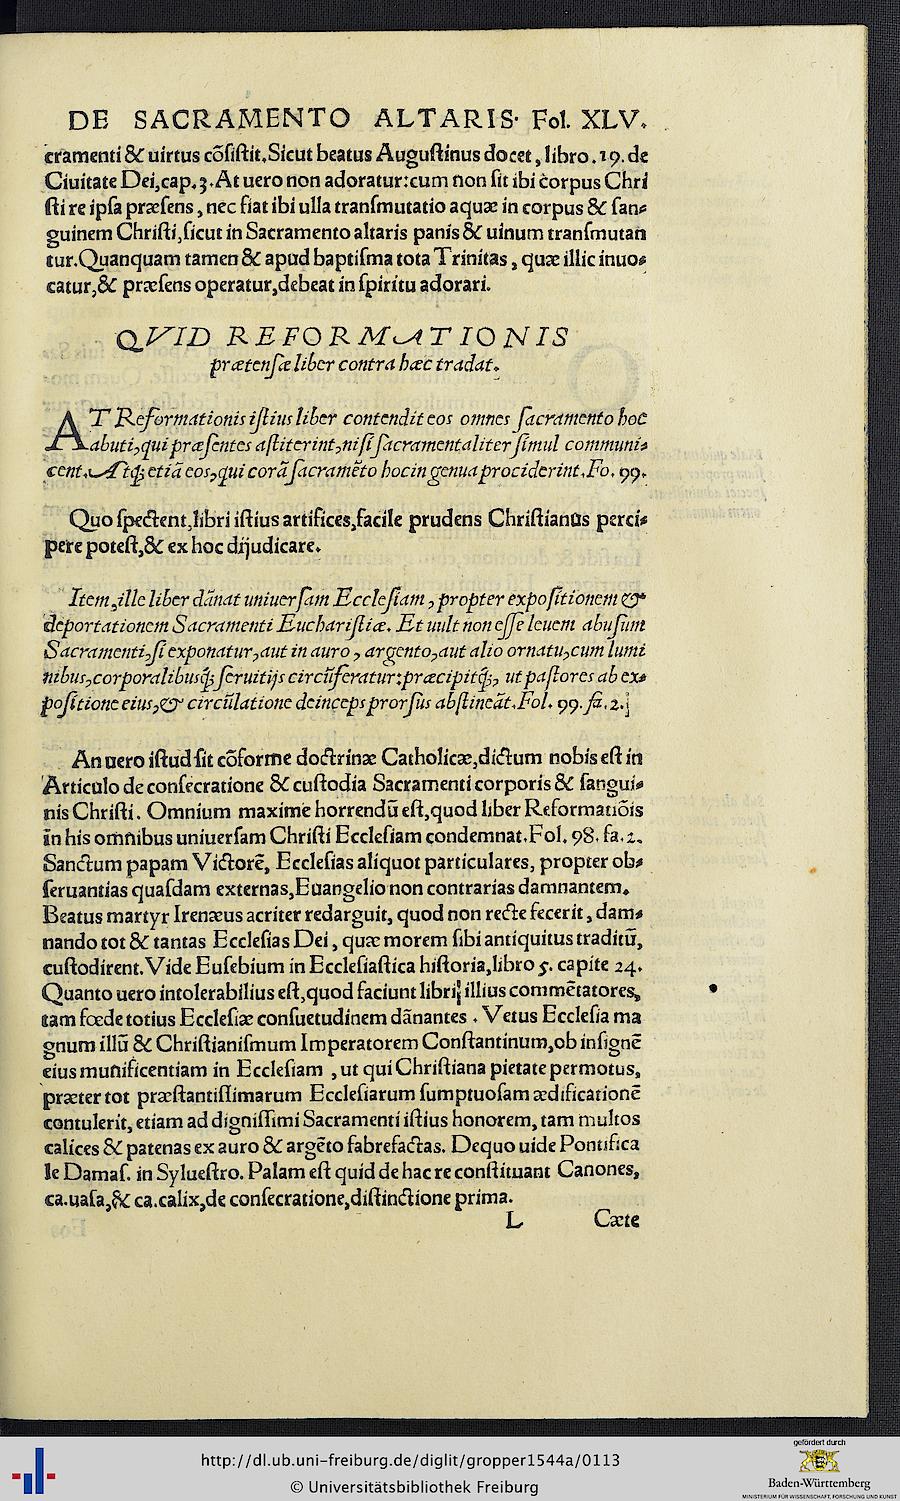 DE SACRAMENTO ALTARIS. Fol. XLV.
cramenti & uirtus cõſiſtit. Sicut beatus Auguſtinus docet, libro. 19. de
Ciuitate Dei, cap. 3. At uero non adoratur: cum non ſit ibi corpus Chri
ſti re ipſa præſens, nec fiat ibi ulla tranſmutatio aquæ in corpus & ſan⸗
guinem Chriſti, ſicut in Sacramento altaris panis & uinum tranſmutan
tur. Quanquam tamen & apud baptiſma tota Trinitas, quæ illic inuo⸗
catur, & præſens operatur, debeat in ſpiritu adorari.
QVID REFORMATIONIS
prætenſæ liber contra hæc tradat.
AT Reformationis iſtius liber contendit eos omnes ſacramento hoc
abuti, qui præſentes aſtiterint, niſi ſacramentaliter ſimul communi⸗
cent. Atq; etiã eos, qui corã ſacramẽto hoc in genua prociderint. Fo. 99.
Quo ſpectent, libri iſtius artifices, facile prudens Chriſtianus perci⸗
pere poteſt, & ex hoc dijudicare.
Item, ille liber dãnat uniuerſam Eccleſiam, propter expoſitionem &
deportationem Sacramenti Euchariſtiæ. Et uult non eſſe leuem abuſum
Sacramenti, ſi exponatur, aut in auro, argento, aut alio ornatu, cum lumi
nibus, corporalibusq; ſeruitijs circũferatur: præcipitq;, ut paſtores ab ex⸗
poſitione eius, & circũlatione deinceps prorſus abſtineãt. Fol. 99. fa. 2.
An uero iſtud ſit cõforme doctrinæ Catholicæ, dictum nobis eſt in
Articulo de conſecratione & cuſtodia Sacramenti corporis & ſangui⸗
nis Chriſti. Omnium maxime horrendũ eſt, quod liber Reformatiõis
in his omnibus uniuerſam Chriſti Eccleſiam condemnat. Fol. 98. fa. 2.
Sanctum papam Victorẽ, Eccleſias aliquot particulares, propter ob⸗
ſeruantias quaſdam externas, Euangelio non contrarias damnantem.
Beatus martyr Irenæus acriter redarguit, quod non recte fecerit, dam⸗
nando tot & tantas Eccleſias Dei, quæ morem ſibi antiquitus traditũ,
cuſtodirent. Vide Euſebium in Eccleſiaſtica hiſtoria, libro 5. capite 24.
Quanto uero intolerabilius eſt, quod faciunt libri illius commẽtatores,
tam fœde totius Eccleſiæ conſuetudinem dãnantes. Vetus Eccleſia ma
gnum illũ & Chriſtianiſmum Imperatorem Conſtantinum, ob inſignẽ
eius munificentiam in Eccleſiam, ut qui Chriſtiana pietate permotus,
præter tot præſtantiſſimarum Eccleſiarum ſumptuoſam ædificationẽ
contulerit, etiam ad digniſſimi Sacramenti iſtius honorem, tam multos
calices & patenas ex auro & argẽto fabrefactas. De quo uide Pontifica
le Damaſ. in Sylueſtro. Palam eſt quid de hac re conſtituant Canones,
ca. uaſa, & ca. calix, de conſecratione, diſtinctione prima.
L Cæte
http://dl.ub.uni-freiburg.de/diglit/gropper1544a/0113
© Universitätsbibliothek Freiburg
gefördert durch
Baden-Württemberg
MINISTERIUM FÜR WISSENSCHAFT, FORSCHUNG UND KUNST